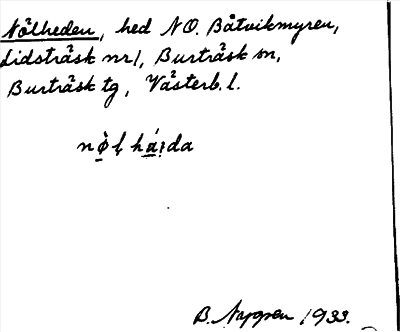 Nölheden, hed NO. Båtvikmyren,
Lidsträsk nr 1, Burträsk sn,
Burträsk tg, Västerb. l.
B. Nygren 1933.